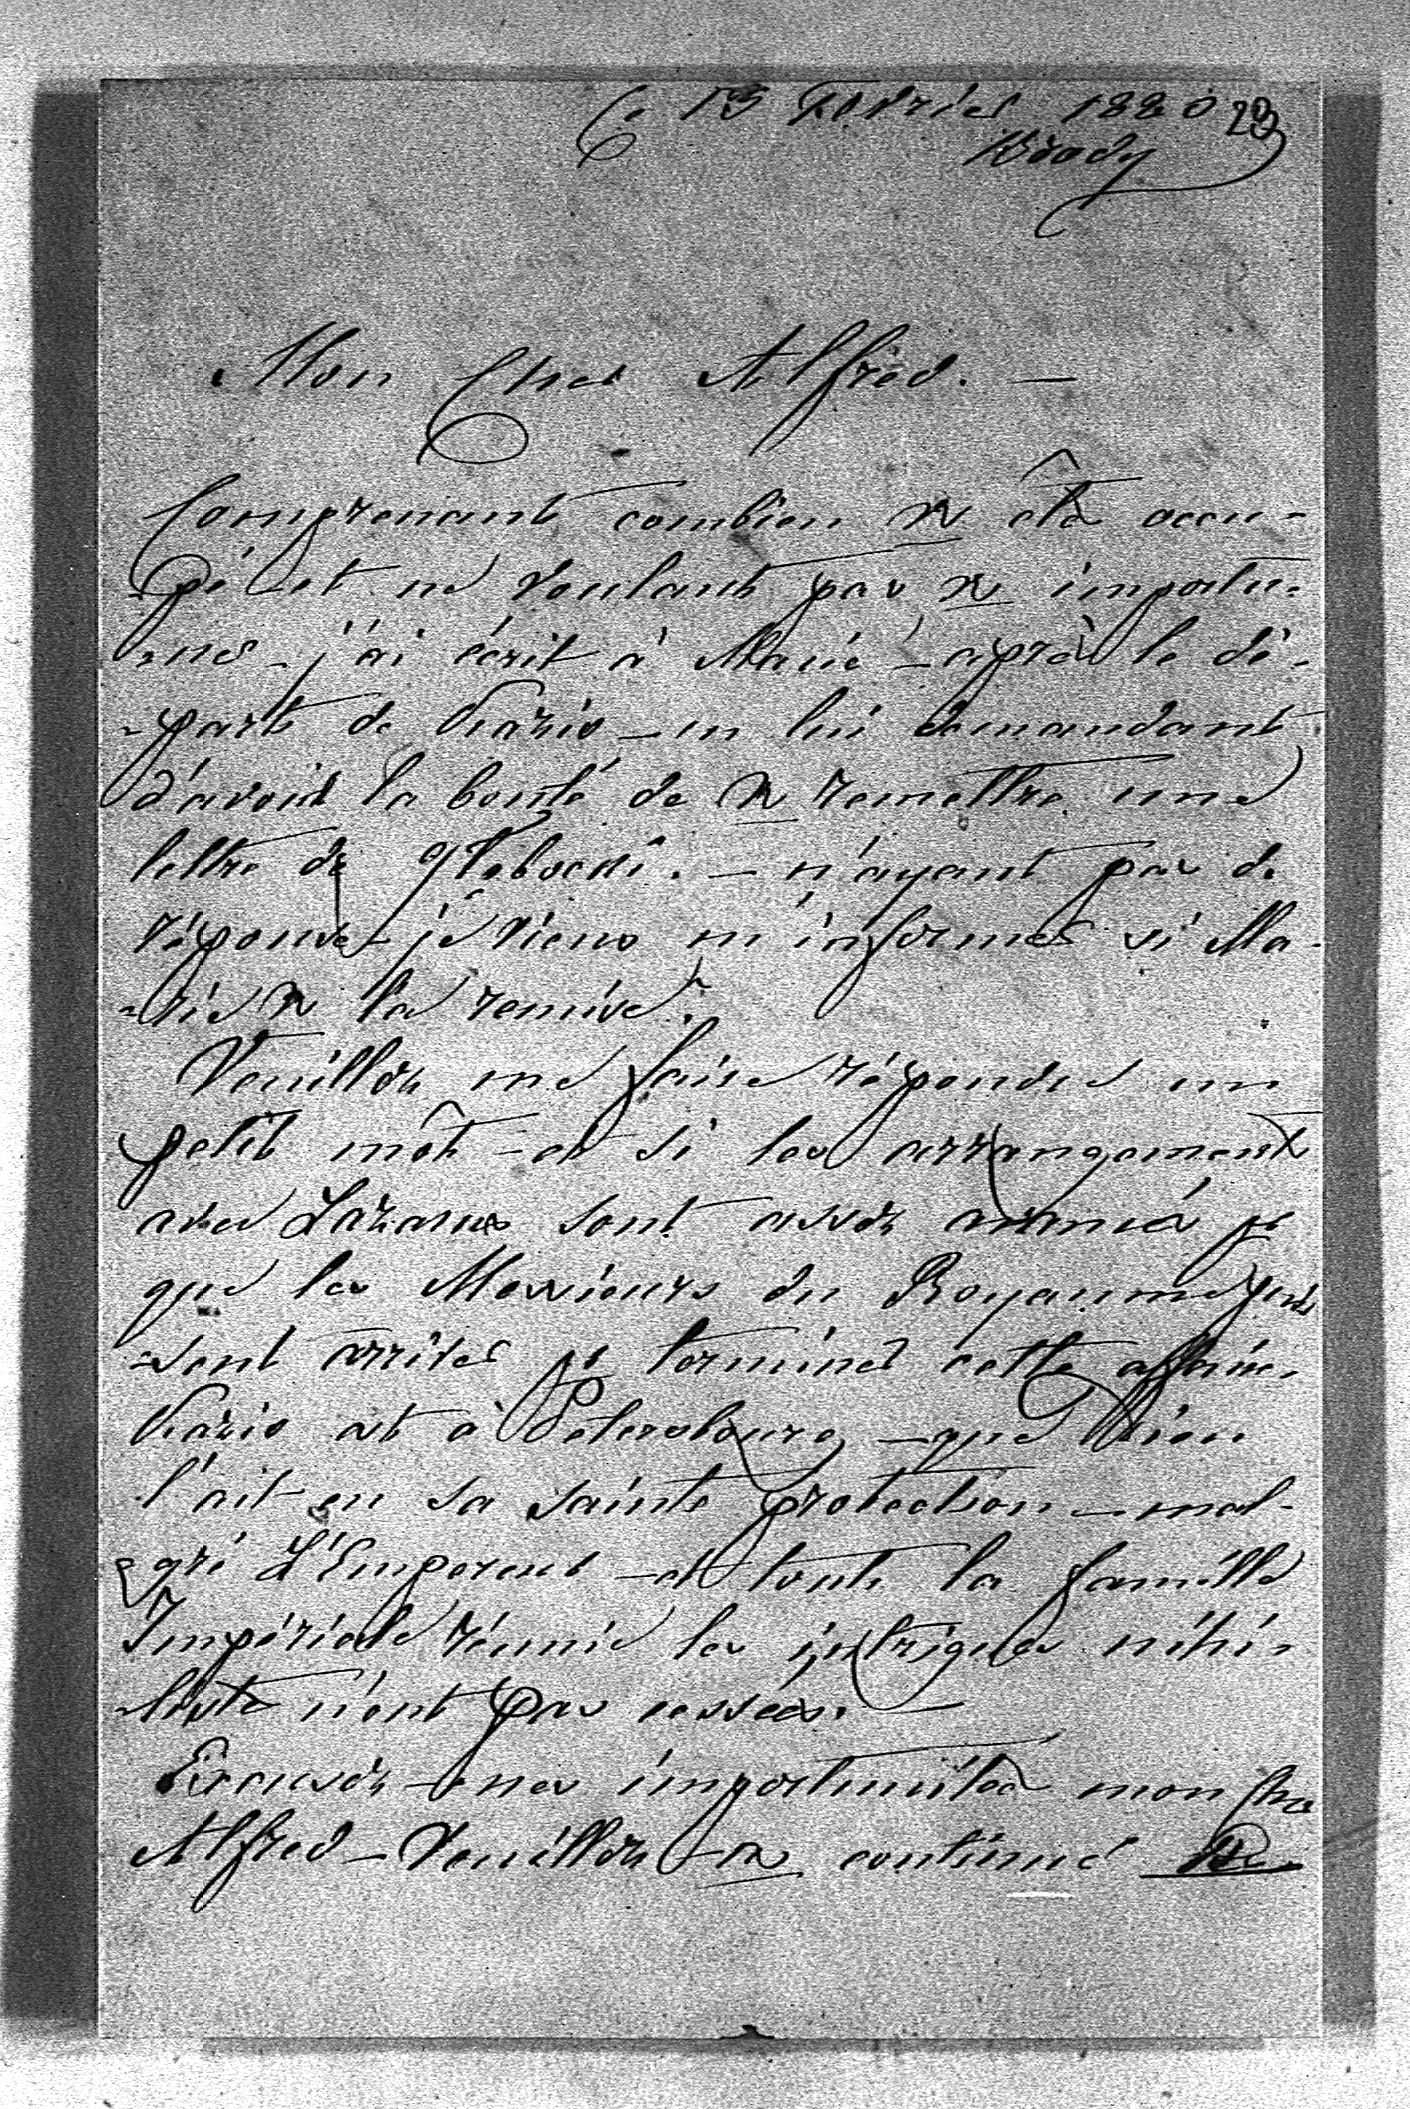 Ce 13 Février 1880 23
Brody
Mon Cher Alfred. —
Comprenant combien êtes occu-
-pé et ne voulant pas importu-
-ner - j'ai écrit à Marie - après le dé-
-part de Kazio - en lui demandant
d'avoir la bonté de remettre une
lettre de . — n'ayant pas de
réponse - je viens m'informer si Ma-
-rie l'a remise?
Veuillez me faire répondre un
petit môt - et si les arrangements
avec Lazarus sont assez
que les Messieurs du Royaume puis
-sent arriver terminer cette affaire.
Kazio est à Petersbourg - que Dieu
l'ait en sa sainte protection - mal-
-gré L'Empereur - et toute la famille
Impériale réunie les intrigues nihi-
-listes n'ont pas cessées. —
Excusez - mes importunités mon Cher
Alfred - Veuillez - continué